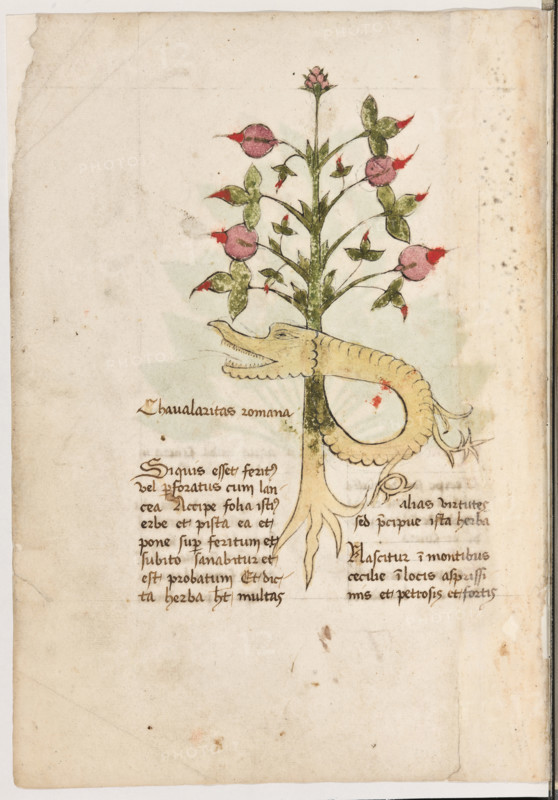 Chaualaritas romana
Siquis esset ferit9
vel pforatus cum lan-
cea Accipe folia isti9
erbe et pista ea et
pone sup feritum et
subito sanabitur et
est probatum Et dic-
ta herba ht multas
alias virtutes
sed pcipue ista herba
Nascitur ī montibus
cecilie ī locis asprissi
mis et petrosis et fortis